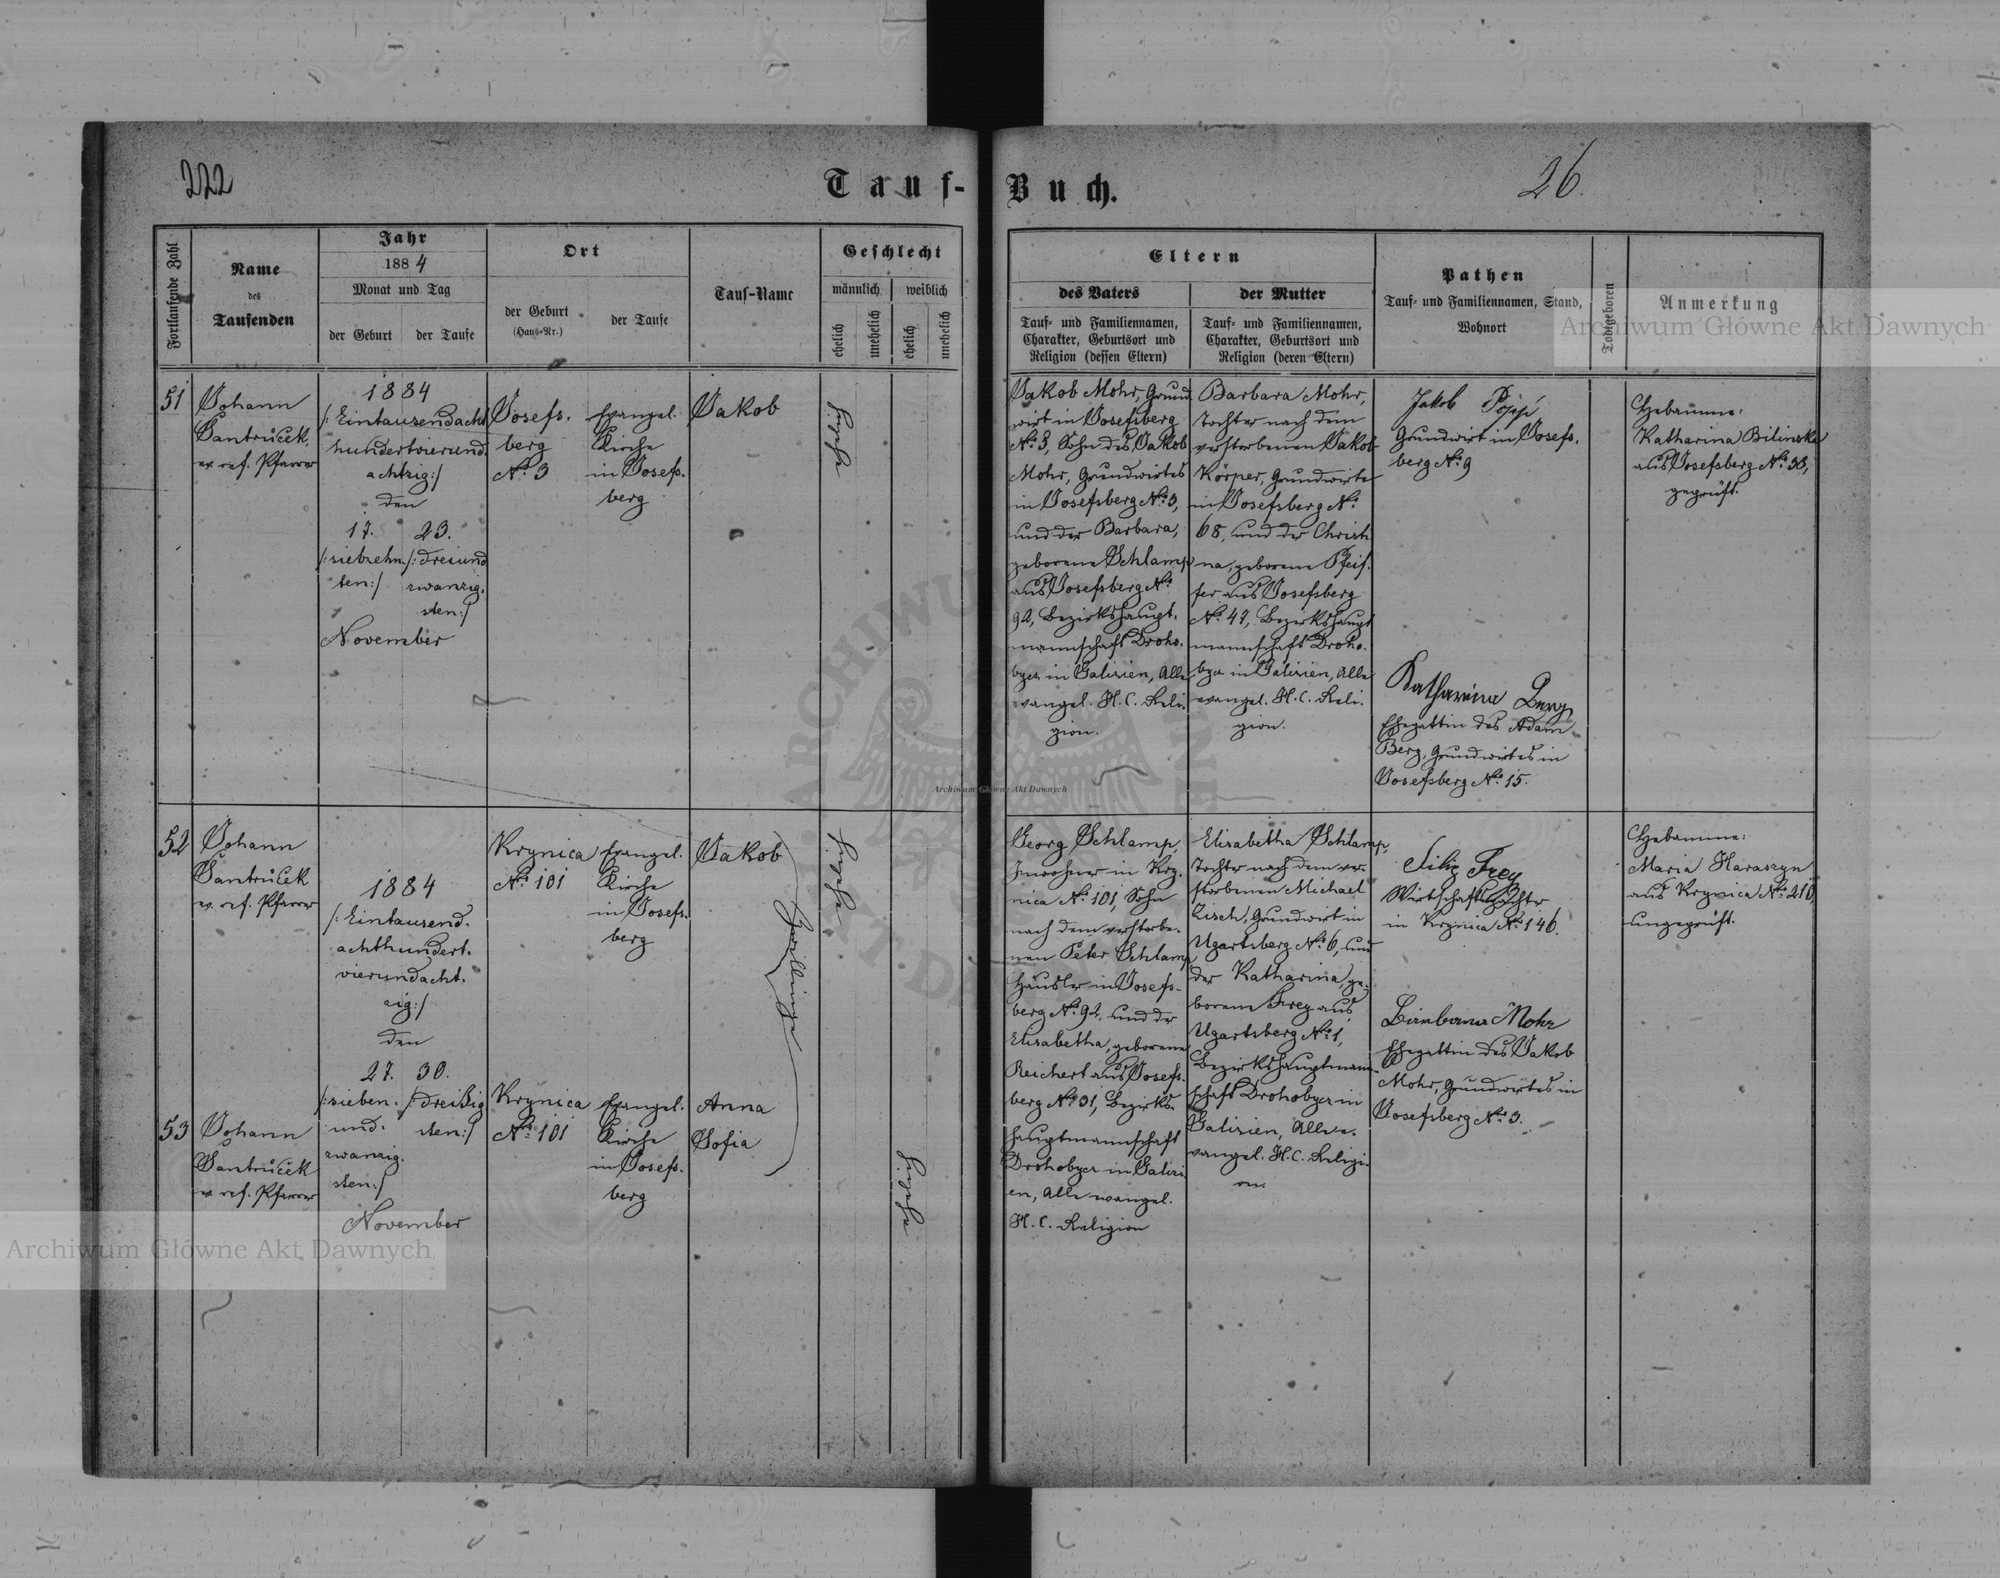 222
Tauf-Buch.
26.
Fortlaufende Zahl
Name
des
Taufenden
Jahr
1884
Monat und Tag
der Geburt
der Taufe
Ort
der Geburt
(Haus-Nr.)
der Taufe
Tauf-Name
Geschlecht
männlich
weiblich
ehelich
unehelich
ehelich
unehelich
Eltern
des Vaters
der Mutter
Tauf- und Familiennamen,
Charakter, Geburtsort und
Religion (dessen Eltern)
Tauf- und Familiennamen,
Charakter, Geburtsort und
Religion (deren Eltern)
Pathen
Tauf- und Familiennamen, Stand,
Wohnort
Todtgeboren
Anmerkung
51
Johann
Šantrůček,
ev. ref. Pfarrer
1884
/:Eintausendacht
hundertvierund.
achtzig:/
den
17.
23.
/:siebzehn.
ten:/
/:dreiund
zwanzig.
sten:/
November
Josefs.
berg
No 3
Evangel.
Kirche
in Josefs.
berg
Jakob
Ehelich
Jakob Mohr, Grund
wirt in Josefsberg
No 3, Sohn des Jakob
Mohr, Grundwirtes
in Josefsberg No 3,
und der Barbara,
geborene Schlamp
aus Josefsberg No
92, Bezirkshaupt.
mannschaft Droho.
bycz in Galizien, Alle
evangel. H. C. Reli.
gion.
Barbara Mohr,
Tochter nach dem
verstorbenen Jakob
Körper, Grundwirte
in Josefsberg No
68, und der Christi
na, geborene Pfeif.
fer aus Josefsberg
No 47, Bezirkshaupt
mannschaft Droho.
bycz in Galizien, Alle
evangel. H. C. Reli.
gion.
Jakob
Grundwirt in Josefs.
berg No 9
Katharina Berg
Ehegattin des Adam
Berg, Grundwirtes in
Josefsberg No 15.
Hebamme:
Katharina Bilinska
aus Josefsberg No 38,
geprüft.
52
Johann
Šantrůček
ev. ref. Pfarrer
1884
/:Eintausend.
achthundert.
vierundacht.
zig:/
den
27.
30.
/:sieben.
und.
zwanzig.
sten:/
/:dreißig
sten:/
November
Krynica
No 101
Evangel.
Kirche
in Josefs.
berg
Jakob
Zwillinge
Ehelich
Georg Schlamp,
Inwohner in Kry.
nica No 101, Sohn
nach dem verstorbe.
nen Peter Schlamp
Häusler in Josefs.
berg No 92, und der
Elisabetha, geborene
Reichert aus Josefs.
berg No 31, Bezirks.
hauptmannschaft
Drohobycz in Galizi
en, Alle evangel.
H. C. Religion
Elisabetha Schlamp,
Tochter nach dem ver.
storbenen Michael
Zisch, Grundwirt in
Ugartsberg No 6, und
der Katharina, ge.
borene Frey aus
Ugartsberg No 1,
Bezirkshauptmann.
schaft Drohobycz in
Galizien, Alle e.
vangel. H. C. Religi.
on.
Filip Frey
Wirtschaftspächter
in Krynica No 146.
Barbara Mohr
Ehegattin des Jakob
Mohr, Grundwirtes in
Josefsberg No 3.
Hebamme:
Maria Haraszyn
aus Krynica No 210,
ungeprüft.
53
Johann
Šantrůček
ev. ref. Pfarrer
Krynica
No 101
Evangel.
Kirche
in Josefs.
berg
Anna
Sofia
Ehelich
Archiwum Główne Akt Dawnych
Archiwum Główne Akt Dawnych
Archiwum Główne Akt Dawnych